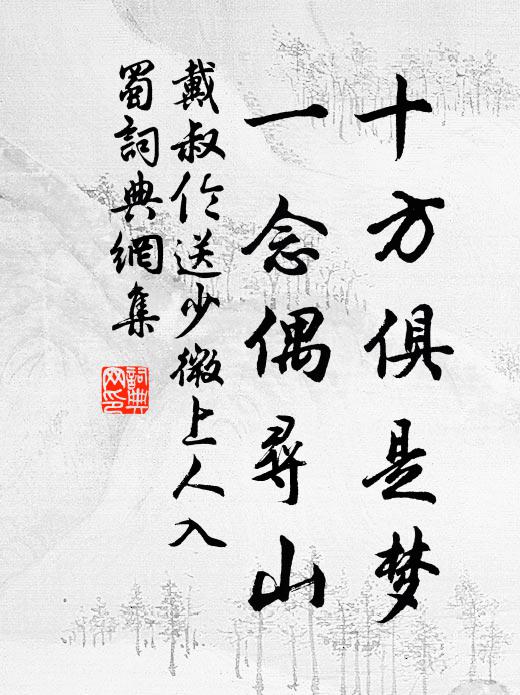 十方俱是梦
一念偶尋山
戴叔伦送少微上人入
蜀詞典網集
詞典
网印